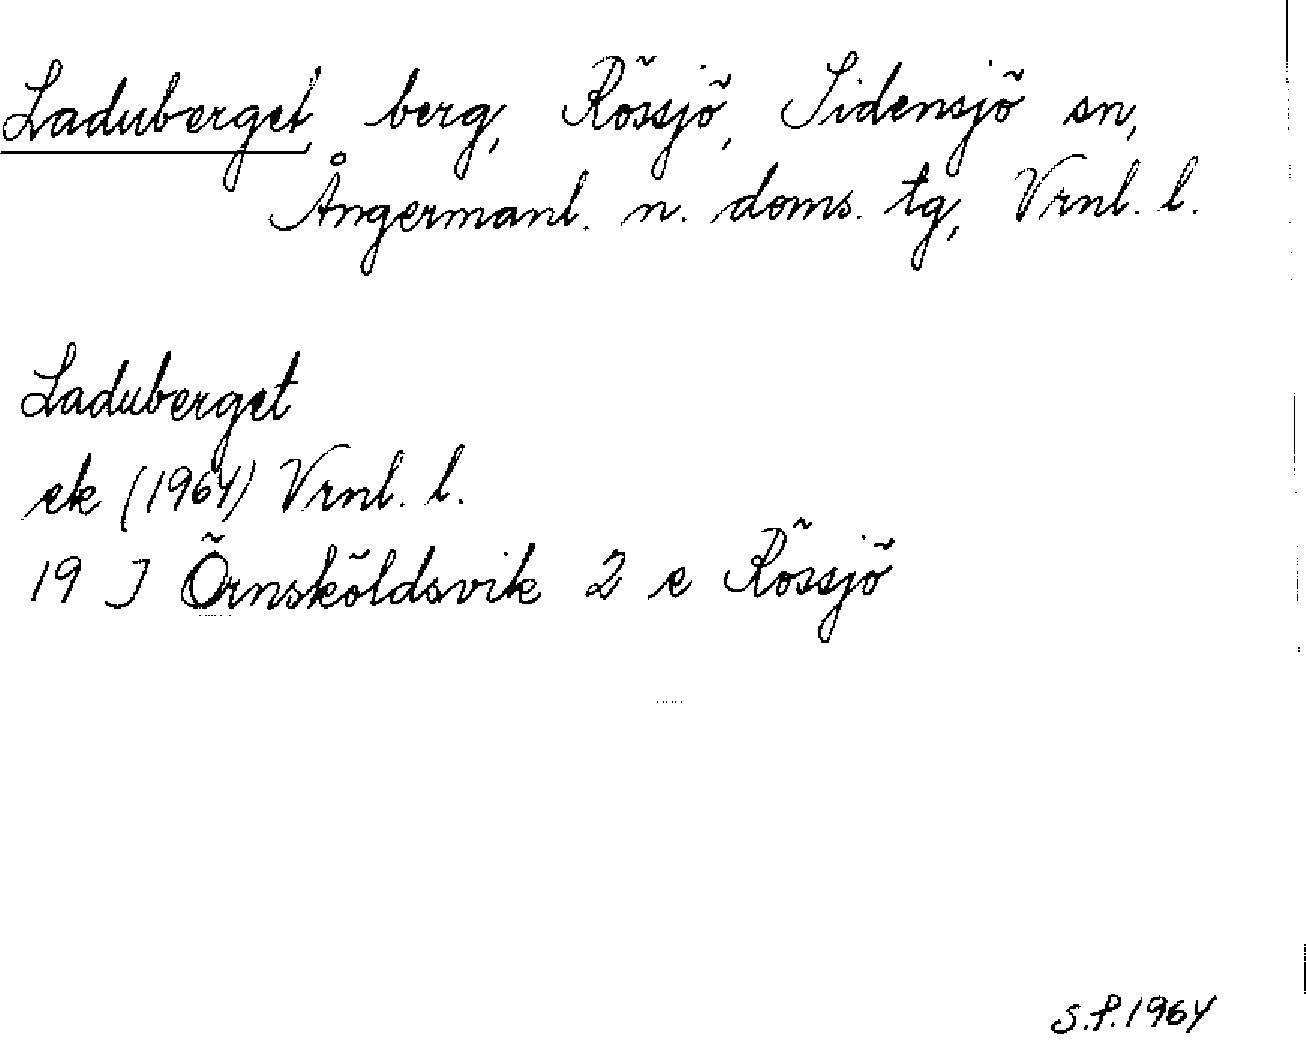 Laduberget berg, Rössjö, Sidensjö sn,
Ångermanl. n. doms. tg, Vrnl. l.
Laduberget
ek (1964) Vrnl. l.
19 J Örnsköldsvik 2 e Rössjö
S.P. 1964